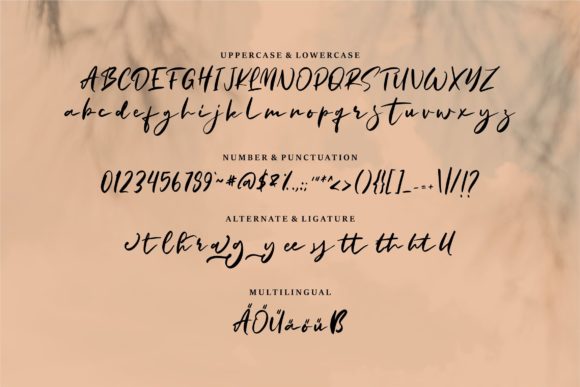 UPPERCASE & LOWERCASE
ABCDEFGHIJKLMNOPQRSTUVWXYZ
abcdefghijklmnopqrstuvwxyz
NUMBER & PUNCTUATION
0123456789~#@$&%.,:;'"*^<>(){}[]_-=+\|/!?
ALTERNATE & LIGATURE
ee tt th ht ll
MULTILINGUAL
ÄÖÜäöüß